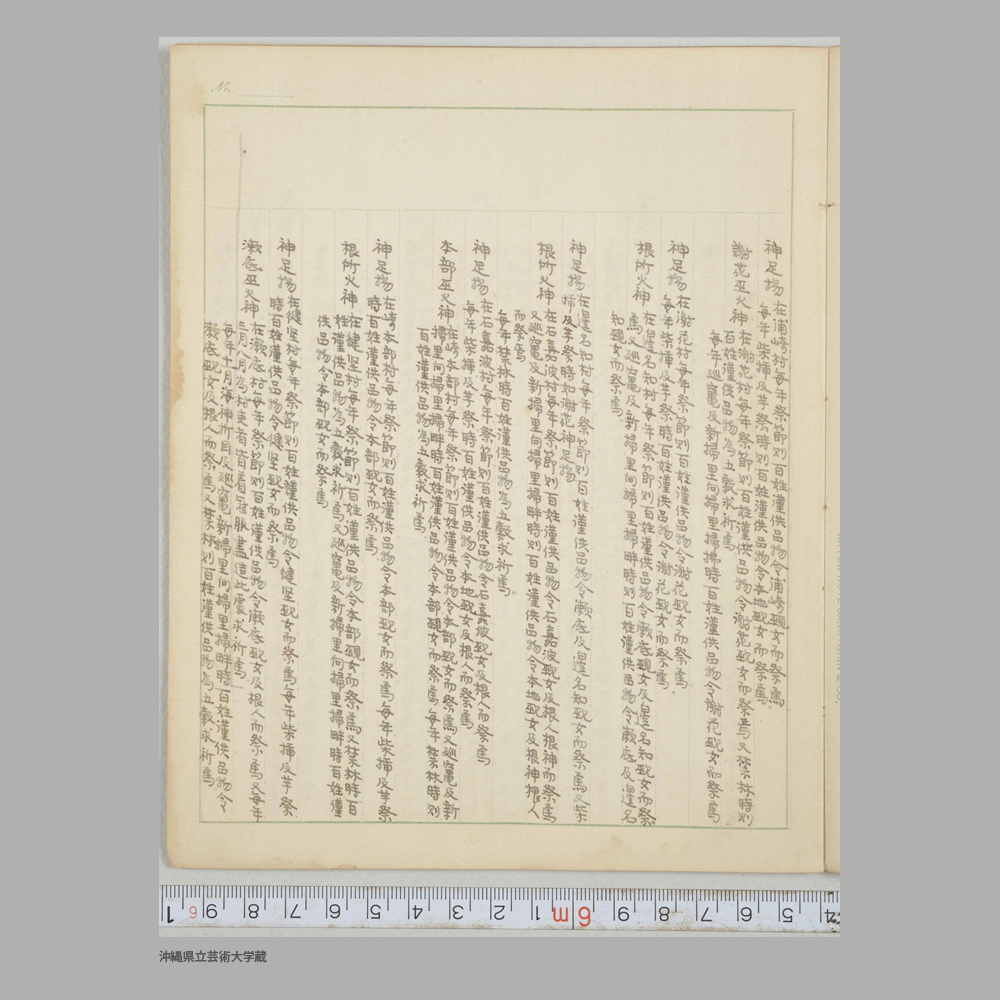 神足揚 在浦崎村毎年祭節則百姓謹供品物令浦崎覡女而祭焉
毎年柴揷及芋祭時則百姓謹供品物令本地覡女而祭焉
謝花巫火神 在謝花村毎年祭節則百姓謹供品物令謝花覡女而祭焉又禁林時則
百姓謹供品物為五穀求祈焉
毎年巡竃及新掃里向掃里掃拂時百姓謹供品物令謝花覡女而祭焉
神足揚 在謝花村毎年祭節則百姓謹供品物令謝花覡女而祭焉
毎年柴揷及芋祭時則百姓謹供品物令謝花覡女而祭焉
根所火神 在邊名知村毎年祭節則百姓謹供品物令瀨底覡女及邊名知覡女而祭
焉又巡竃及新掃里向掃里掃畔時則百姓謹供品物令瀨底及邊名
知覡女而祭焉
神足揚 在邊名知村毎年祭節則百姓謹供品物令瀨底及邊名知覡女而祭焉又柴
揷及芋祭時如謝花神足揚
根所火神 在石嘉波村毎年祭節則百姓謹供品物令石嘉波覡女及根人根神而祭焉
又巡竃及新掃里向掃里掃畔時則百姓謹供品物令本地覡女及根神根人
而祭焉
毎年禁林時百姓謹供品物為五穀求祈焉
神足揚 在石嘉波村毎年祭節則百姓謹供品物令石嘉波覡女及根人而祭焉
毎年柴揷及芋祭時百姓謹供品物令本地覡女及根人而祭焉
本部巫火神 在崎本部村毎年祭節則百姓謹供品物令本部覡女而祭焉又巡竃及新
掃里向掃里掃畔時百姓謹供品物令本部覡女而祭焉毎年禁林時則
百姓謹供品物為五穀求祈焉
神足揚 在崎本部村毎年祭節則百姓謹供品物令本部覡女而祭焉毎年柴揷及芋祭
時百姓謹供品物令本部覡女而祭焉
根所火神 在健堅村毎年祭節則百姓謹供品物令本部覡女而祭焉又禁林時百
姓謹供品物為五穀求祈焉又巡竃及新掃里向掃里掃畔時百姓謹
供品物令本部覡女而祭焉
神足揚 在健堅村毎年祭節則百姓謹供品物令健堅覡女而祭焉毎年柴揷及芋祭
時百姓謹供品物令健堅覡女而祭焉
瀨底巫火神 在瀨底村毎年祭節則百姓謹供品物令瀨底覡女及根人而祭焉又毎年
三月八月為村使者皆着冠服盡造此處求祈焉
毎年十一月海神折目及巡竃新掃里向掃里掃畔時百姓謹供品物令
瀨底覡女及根人而祭焉又禁林則百姓謹供品物為五穀求祈焉
沖縄県立芸術大学蔵